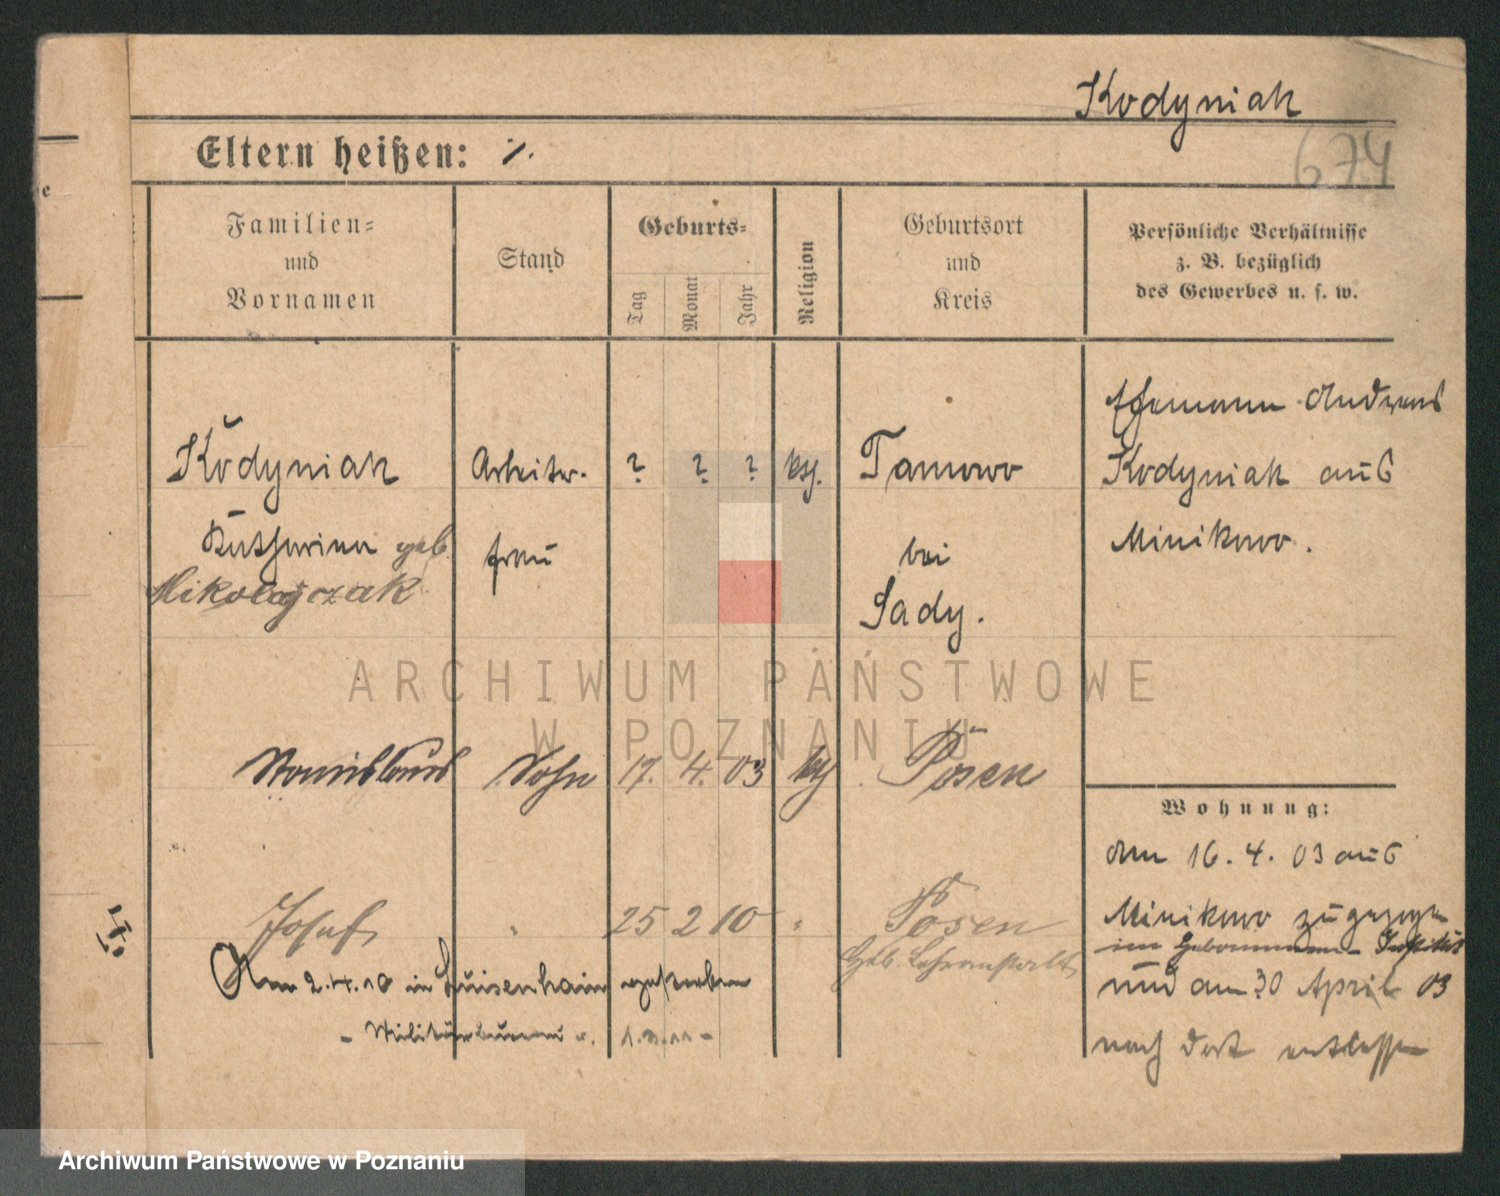 Kodyniak
674
Eltern heißen: ·/.
Familien-
und
Vornamen
Stand
Geburts-
Tag
Monat
Jahr
Religion
Geburtsort
und
Kreis
Persönliche Verhältnisse
z. B. bezüglich
des Gewerbes u. s. w.
Kodyniak
Katharina geb.
Mikolajczak
Arbeiter-
frau
? ? ? kth.
Tarnowo
bei
Sady.
Ehemann Andreas
Kodyniak aus
Minikowo.
Stanislaus Sohn 17. 4. 03 kth Posen
Wohnung:
Am 16. 4. 03 aus
Minikowo zugezogen
im Hebammen-Institut
und am 30 April 03
nach dort entlassen
Josef " 25 2 10 " Posen
Heb. Lehranstalt
Am 2.4.10 in Luisenhain gestorben
- Militärbureau v. 1.3.11 -
ARCHIWUM PAŃSTWOWE
W POZNANIU
Archiwum Państwowe w Poznaniu